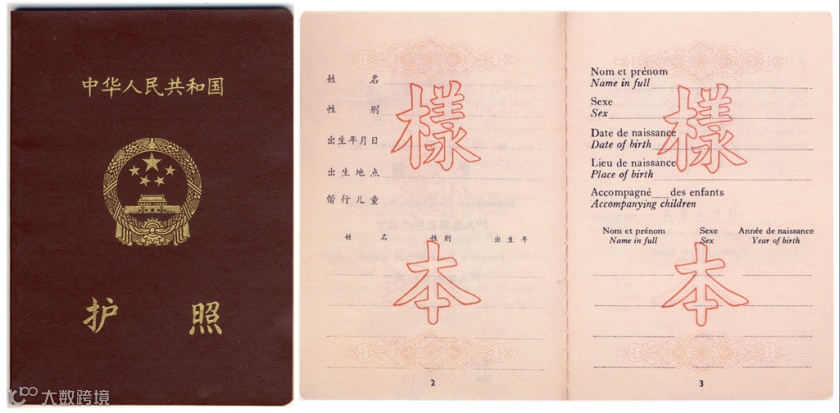 中华人民共和国
护照
姓名
性别
出生年月日
出生地点
偕行儿童
姓名 性别 出生年
樣
本
2
Nom et prénom
Name in full
Sexe
Sex
Date de naissance
Date of birth
Lieu de naissance
Place of birth
Accompagné des enfants
Accompanying children
Nom et prénom Sexe Année de naissance
Name in full Sex Year of birth
樣
本
3
大数跨境